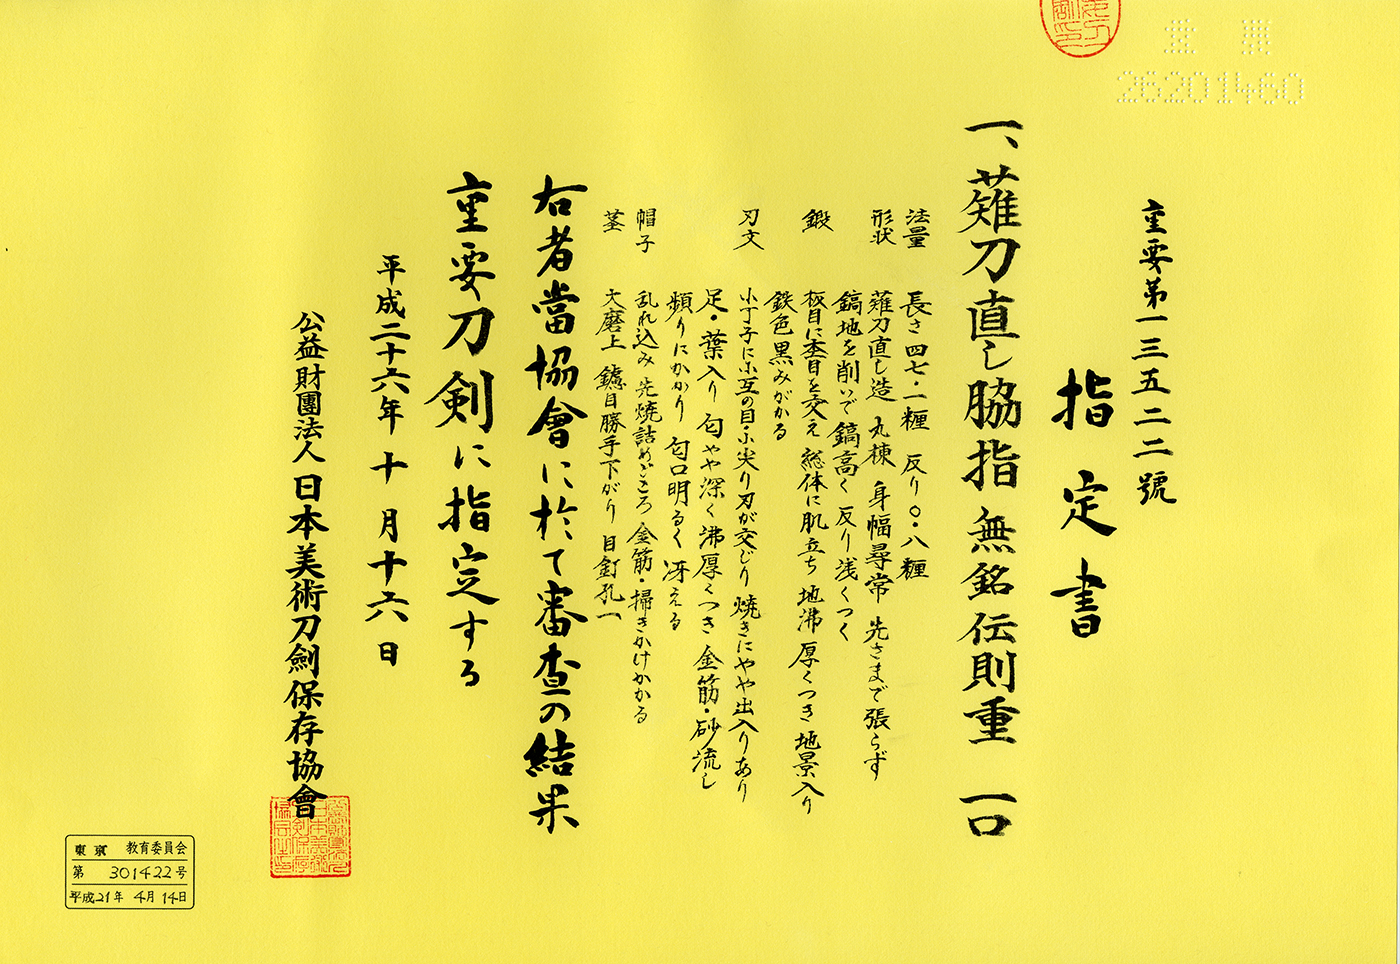 重要
26201460
重要第一三五二二號
指定書
一、薙刀直し脇指 無銘 伝則重 一口
法量 長さ四七・一糎 反り〇・八糎
形状 薙刀直し造 丸棟 身幅尋常 先さまで張らず
鎬地を削いで鎬高く 反り浅くつく
鍛 板目に杢目を交え 総体に肌立ち 地沸厚くつき 地景入り
鉄色黒みがかる
刃文 小丁子に小互の目・小尖り刃が交じり 焼きにやや出入りあり
足・葉入り 匂やや深く 沸厚くつき 金筋・砂流し
頻りにかかり 匂口明るく冴える
帽子 乱れ込み 先焼詰めごころ 金筋・掃きかけかかる
茎 大磨上 鑢目勝手下がり 目釘孔一
右者當協會に於て審査の結果
重要刀剣に指定する
平成二十六年十月十六日
公益財團法人日本美術刀劍保存協會
東京 教育委員会
第 301422号
平成21年 4月 14日